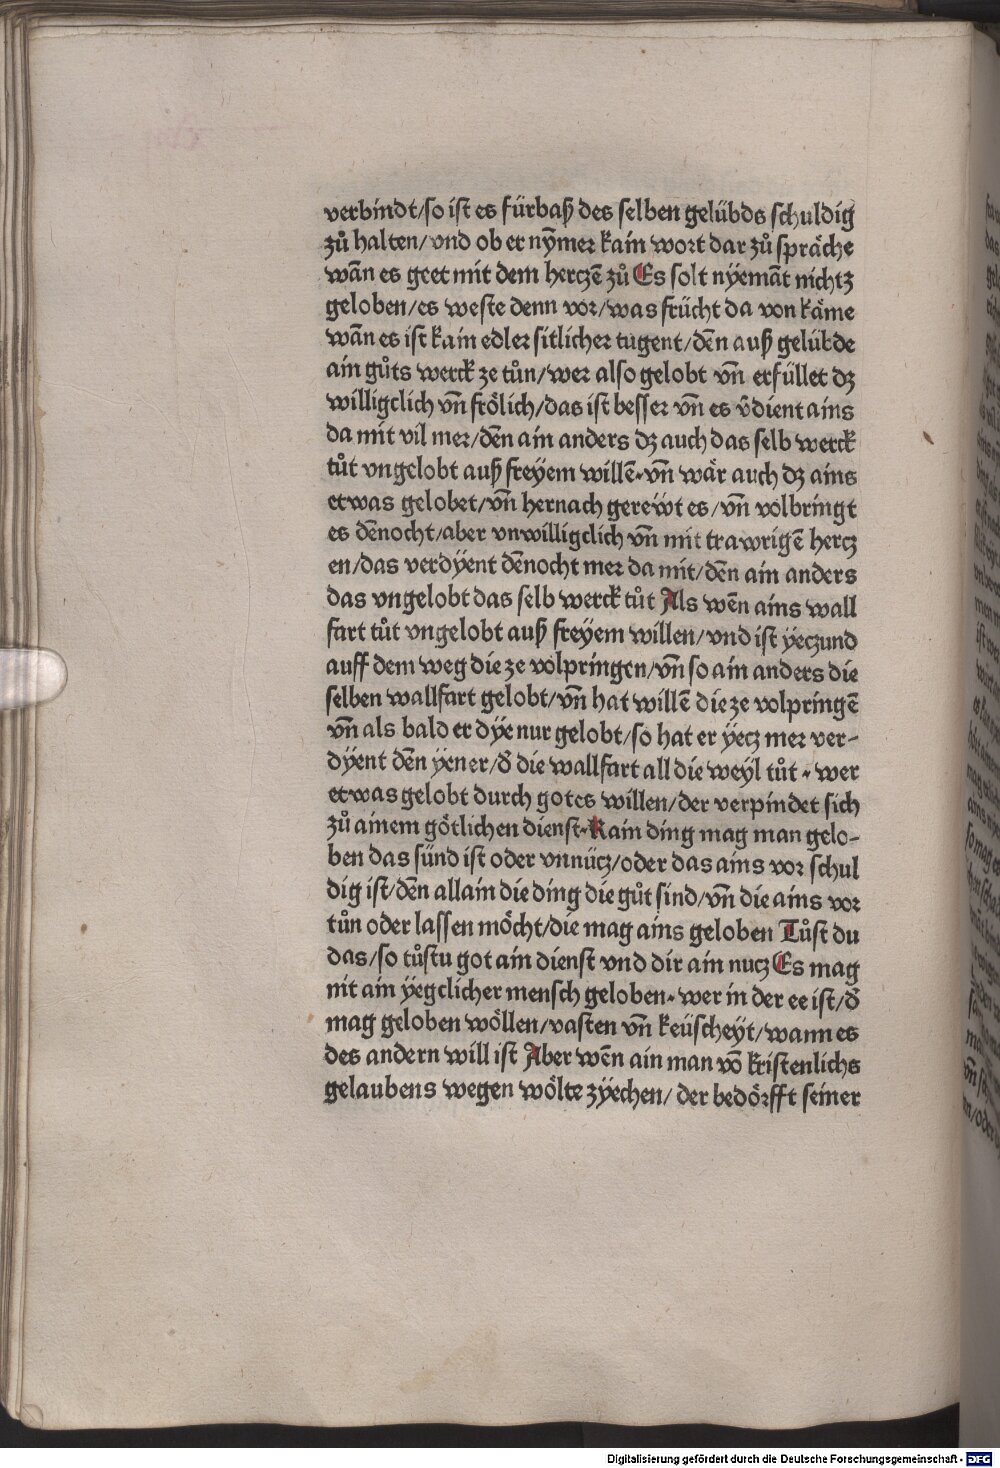 verbindt/so ist es fürbaß des selben gelübds schuldig
zů halten/vnd ob er nÿmer kain wort dar zů spräche
wañ es geet mit dem herczē zů Es solt nyemāt nichtz
geloben/es weste denn vor/was frücht da von käme
wañ es ist kain edler sitlicher tugent/dēn auß gelübde
ain gůts werck ze tůn/wer also gelobt vñ erfüllet dz
willigclich vñ frölich/das ist besser vñ es v̄dient ains
da mit vil mer/dēn ain anders dz auch das selb werck
tůt vngelobt auß freÿem willē·vñ wär auch dz ains
etwas gelobet/vñ hernach gereẅt es/vñ volbringt
es dēnocht/aber vnwilligclich vñ mit trawrigē hercz
en/das verdÿent dēnocht mer da mit/dēn ain anders
das vngelobt das selb werck tůt Als wēn ains wall
fart tůt vngelobt auß freÿem willen/vnd ist ÿeczund
auff dem weg die ze volpringen/vñ so ain anders die
selben wallfart gelobt/vñ hat willē die ze volpringē
vñ als bald er dÿe nur gelobt/so hat er ÿecz mer ver-
dÿent dēn ÿener/d̄ die wallfart all die weÿl tůt · wer
etwas gelobt durch gotes willen/der verpindet sich
zů ainem götlichen dienst·Kain ding mag man gelo-
ben das sünd ist oder vnnücz/oder das ains vor schul
dig ist/dēn allain die ding die gůt sind/vñ die ains vor
tůn oder lassen möcht/die mag ains geloben Tůst du
das/so tůstu got ain dienst vnd dir ain nucz Es mag
nit ain ÿegclicher mensch geloben·wer in der ee ist/d̄
mag geloben wöllen/vasten vñ keüscheÿt/wann es
des andern will ist Aber wēn ain man vō kristenlichs
gelaubens wegen wölte zÿechen/der bedörfft seiner
Digitalisierung gefördert durch die Deutsche Forschungsgemeinschaft - DFG